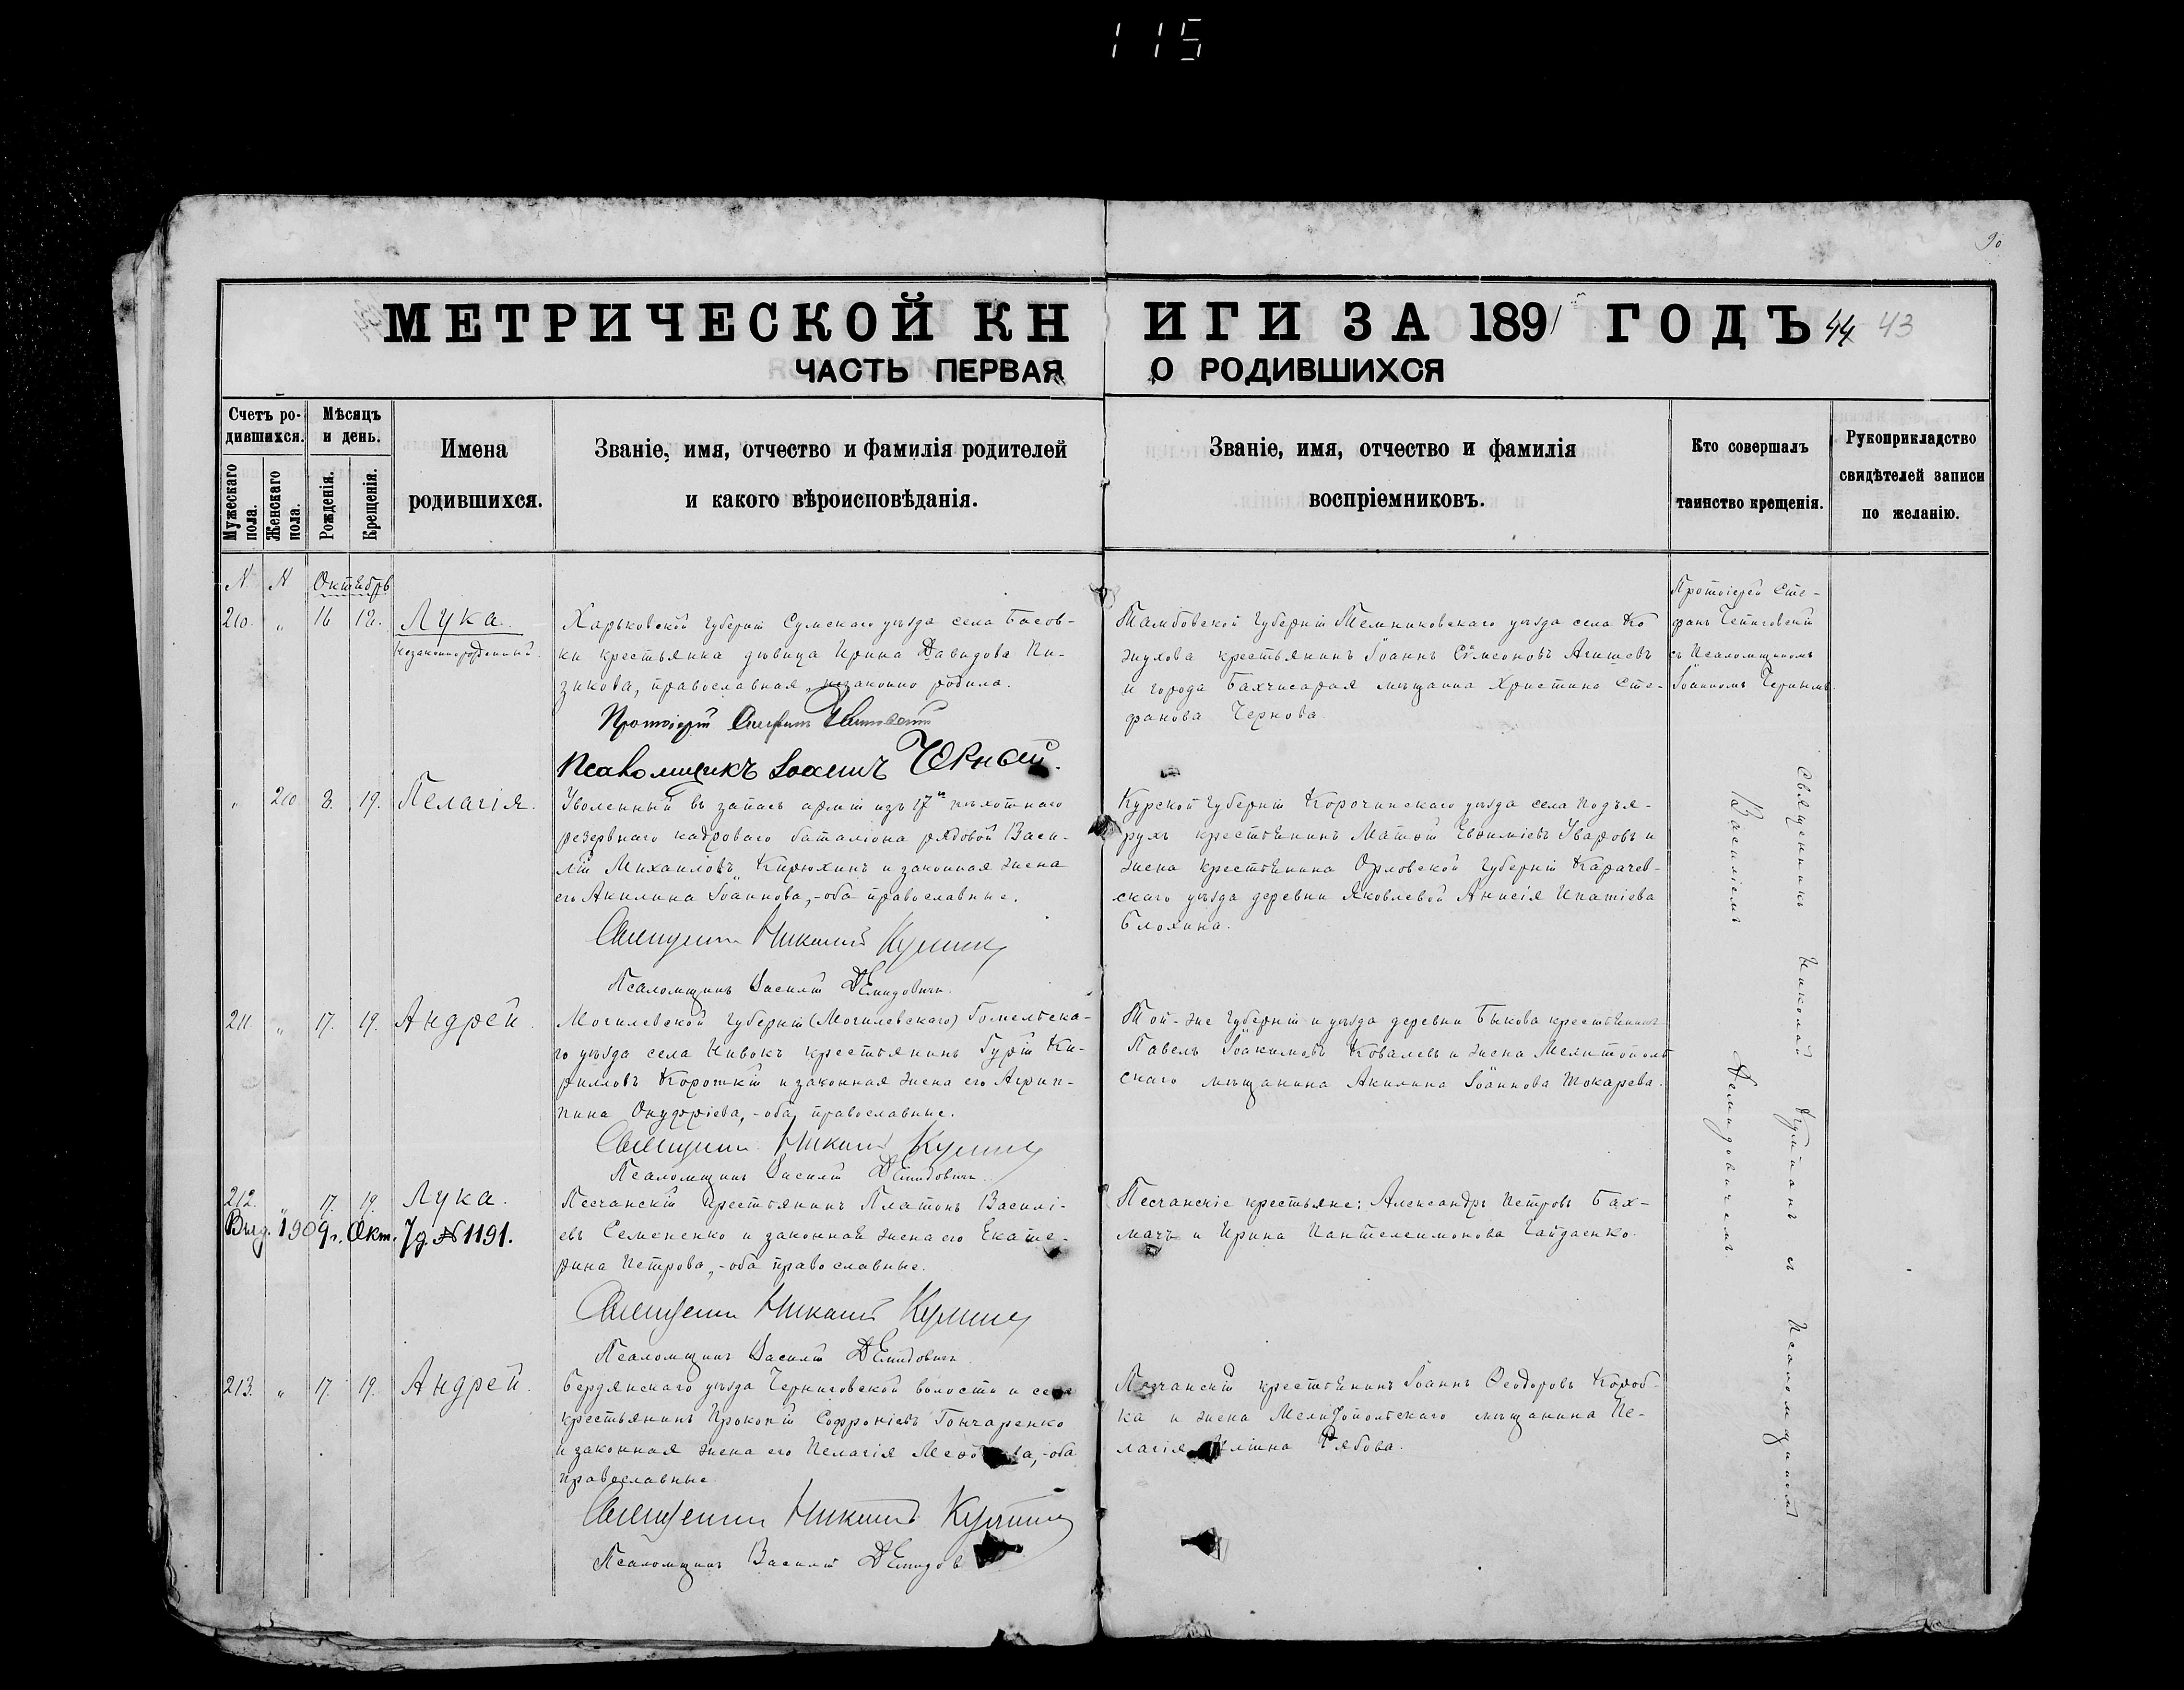 115
90
МЕТРИЧЕСКОЙ КНИГИ ЗА 1891 ГОДЪ 44 43
ЧАСТЬ ПЕРВАЯ О РОДИВШИХСЯ
Счетъ родившихся.
Мужескаго пола.
Женскаго пола.
Мѣсяцъ и день.
Рожденія.
Крещенія.
Имена
родившихся.
Званіе, имя, отчество и фамилія родителей
и какого вѣроисповѣданія.
Званіе, имя, отчество и фамилія
воспріемниковъ.
Кто совершалъ
таинство крещенія.
Рукоприкладство
свидѣтелей записи
по желанію.
N N Октябрь
210. " 16 18. Лука.
незаконнорожденный.
Харьковской губерніи Сумскаго уѣзда села Басов-
ки крестьянка дѣвица Ирина Давидова Пи-
зикова, православная, незаконно родила.
Протоіерей
Псаломщикъ Іоаннъ Черный.
Тамбовской губерніи Темниковскаго уѣзда села Ко
жухова крестьянинъ Іоаннъ Сѵмеоновъ Агишевъ
и города Бахчисарая мѣщанка Христина Сте-
фанова Чернова
Протоіерей Сте-
фанъ
съ Псаломщикомъ
Іоанномъ Чернымъ.
" 210 8. 19. Пелагія.
Уволенный въ запасъ арміи изъ 17го пѣхотнаго
резервнаго кадроваго баталіона рядовой Васи-
лій Михаиловъ Кирюхинъ и законная жена
его Акилина Іоаннова,-оба православные.
Священникъ Николай
Псаломщикъ Василій Демидовичъ.
Курской губерніи Корочинскаго уѣзда села Подъя-
рухъ крестьянинъ Матѳій Евѳиміевъ Уваровъ и
жена крестьянина Орловской губерніи Карачев-
скаго уѣзда деревни Яковлевой Анисія Ипатіева
Блохина.
Священникъ Николай съ Псаломщикомъ
Василіемъ Демидовичемъ.
211 " 17. 19. Андрей.
Могилевской губерніи (Могилевскаго) Гомельска-
го уѣзда села крестьянинъ Гурій Ки-
рилловъ Короткій и законная жена его Агрип-
пина Онуфріева,-оба православные.
Священникъ Николай
Псаломщикъ Василій Демидовичъ.
Той-же губерніи и уѣзда деревни Быкова крестьянинъ
Павелъ Іоакимовъ Ковалевъ и жена Мелитополь
скаго мѣщанина Акилина Іоаннова Токарева.
212. " 17. 19. Лука.
Выд. 1909 г. Окт. 7 д. № 1191.
Песчанскій крестьянинъ Платонъ Василі-
евъ Семененко и законная жена его Екате-
рина Петрова,-оба православные.
Священникъ Николай
Псаломщикъ Василій Демидовичъ.
Песчанскіе крестьяне: Александръ Петровъ Бах-
мачъ и Ирина Пантелеимонова Гайдаенко.
213. " 17. 19. Андрей.
Бердянскаго уѣзда Черниговской волости и села
крестьянинъ Прокопій Софроніевъ Гончаренко
и законная жена его Пелагія -оба
православные
Священникъ Николай
Псаломщикъ Василій Демидов
Песчанскій крестьянинъ Іоаннъ Ѳеодоровъ Короб-
ка и жена Мелитопольскаго мѣщанина Пе-
лагія Иліина Рябова.